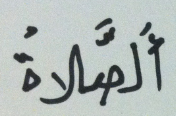 أَلصَّلاةُ